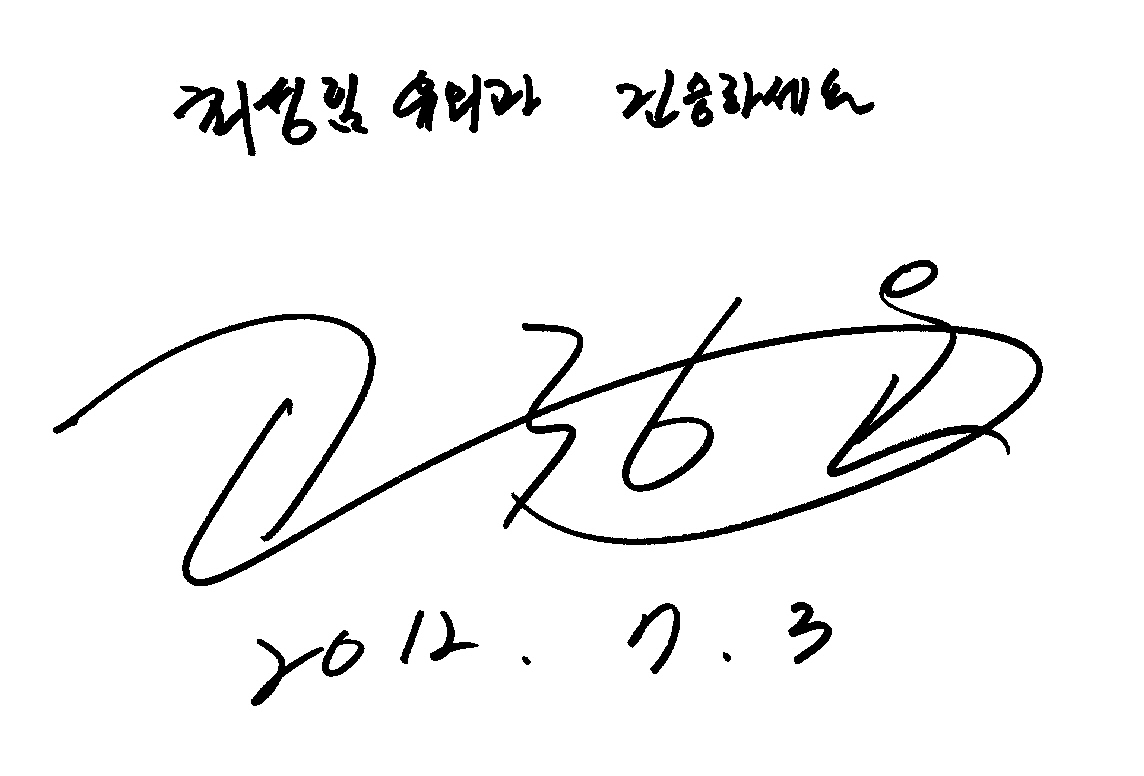 최성힘 유외과 건승하세요
2012. 7. 3